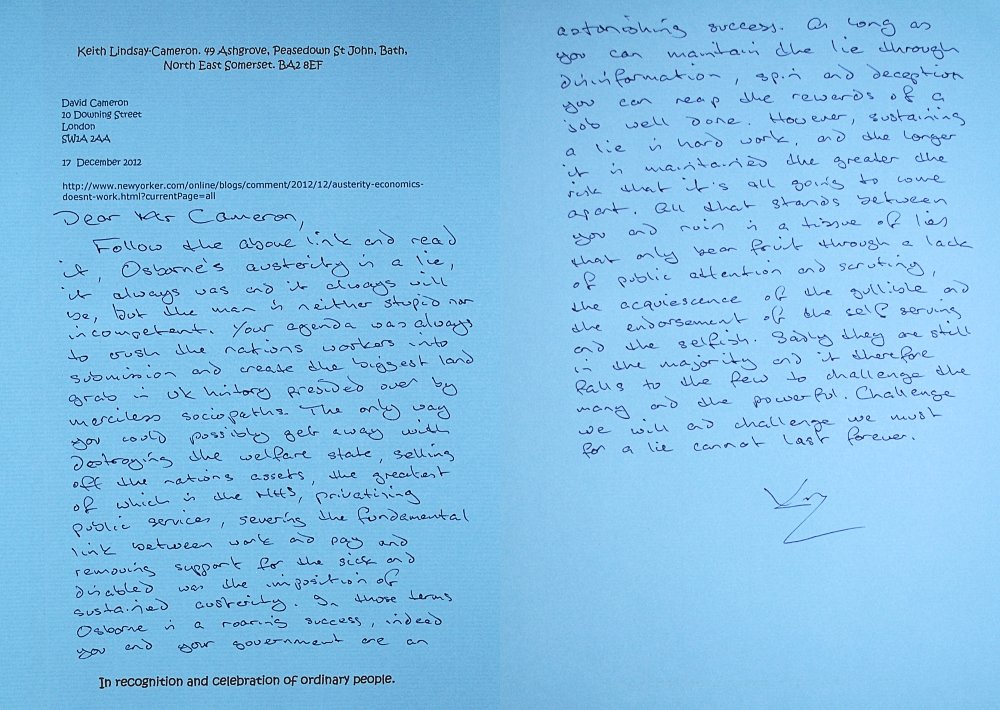 Keith Lindsay-Cameron. 49 Ashgrove, Peasedown St John, Bath,
North East Somerset. BA2 8EF
David Cameron
10 Downing Street
London
SW1A 2AA
17 December 2012
http://www.newyorker.com/online/blogs/comment/2012/12/austerity-economics-
doesnt-work.html?currentPage=all
Dear Mr Cameron,
Follow the above link and read
it, Osborne's austerity is a lie,
it always was and it always will
be, but the man is neither stupid nor
incompetent. Your agenda was always
to crush the nations workers into
submission and create the biggest land
grab in UK history presided over by
merciless sociopaths. The only way
you could possibly get away with
destroying the welfare state, selling
off the nations assets, the greatest
of which is the NHS, privatising
public services, severing the fundamental
link between work and pay and
removing support for the sick and
disabled was the imposition of
sustained austerity. In those terms
Osborne is a roaring success, indeed
you and your government are an
In recognition and celebration of ordinary people.
astonishing success. As long as
you can maintain the lie through
disinformation, spin and deception
you can reap the rewards of a
job well done. However, sustaining
a lie is hard work, and the longer
it is maintained the greater the
risk that it's all going to come
apart. All that stands between
you and ruin is a tissue of lies
that only bear fruit through a lack
of public attention and scrutiny,
the acquiescence of the gullible and
the endorsement of the self serving
and the selfish. Sadly they are still
in the majority and it therefore
falls to the few to challenge the
many and the powerful. Challenge
we will and challenge we must
for a lie cannot last forever.